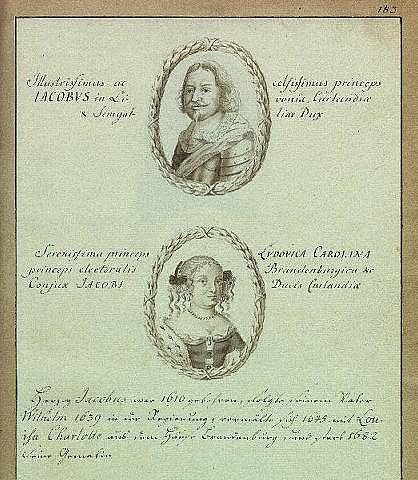 183
Illustrissimus ac celsissimus princeps
IACOBVS in Li- vonia, Curlandiæ
& Semgal- liæ Dux
Serenissima princeps LVDOVICA CAROLINA
princeps electoralis Brandenburgica &c
Conjux IACOBI Ducis Curlandiæ
Herzog Jacobus war 1610 gebohren, folgte seinem Vater
Wilhelm 1639 in der Regierung, vermälte sich 1645 mit Lou-
isa Charlotte aus dem Hause Brandenburg, und starb 1682
Seine Gemalin